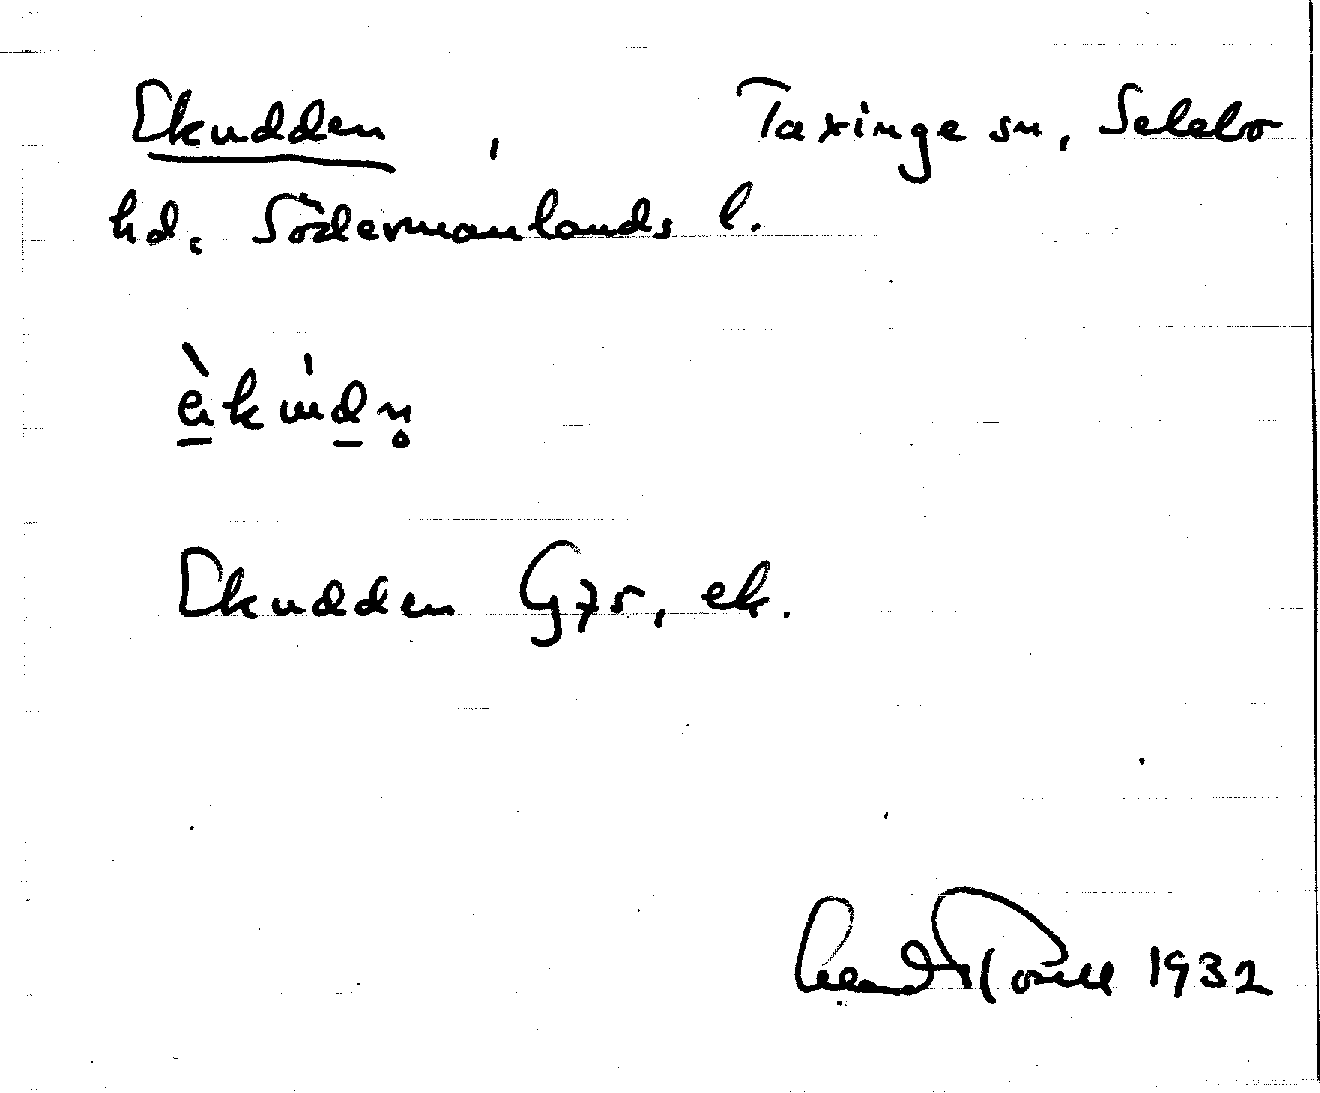 Ekudden, Taxinge sn, Selebo
hd. Södermanlands l.
Ekudden G75, ek.
1932